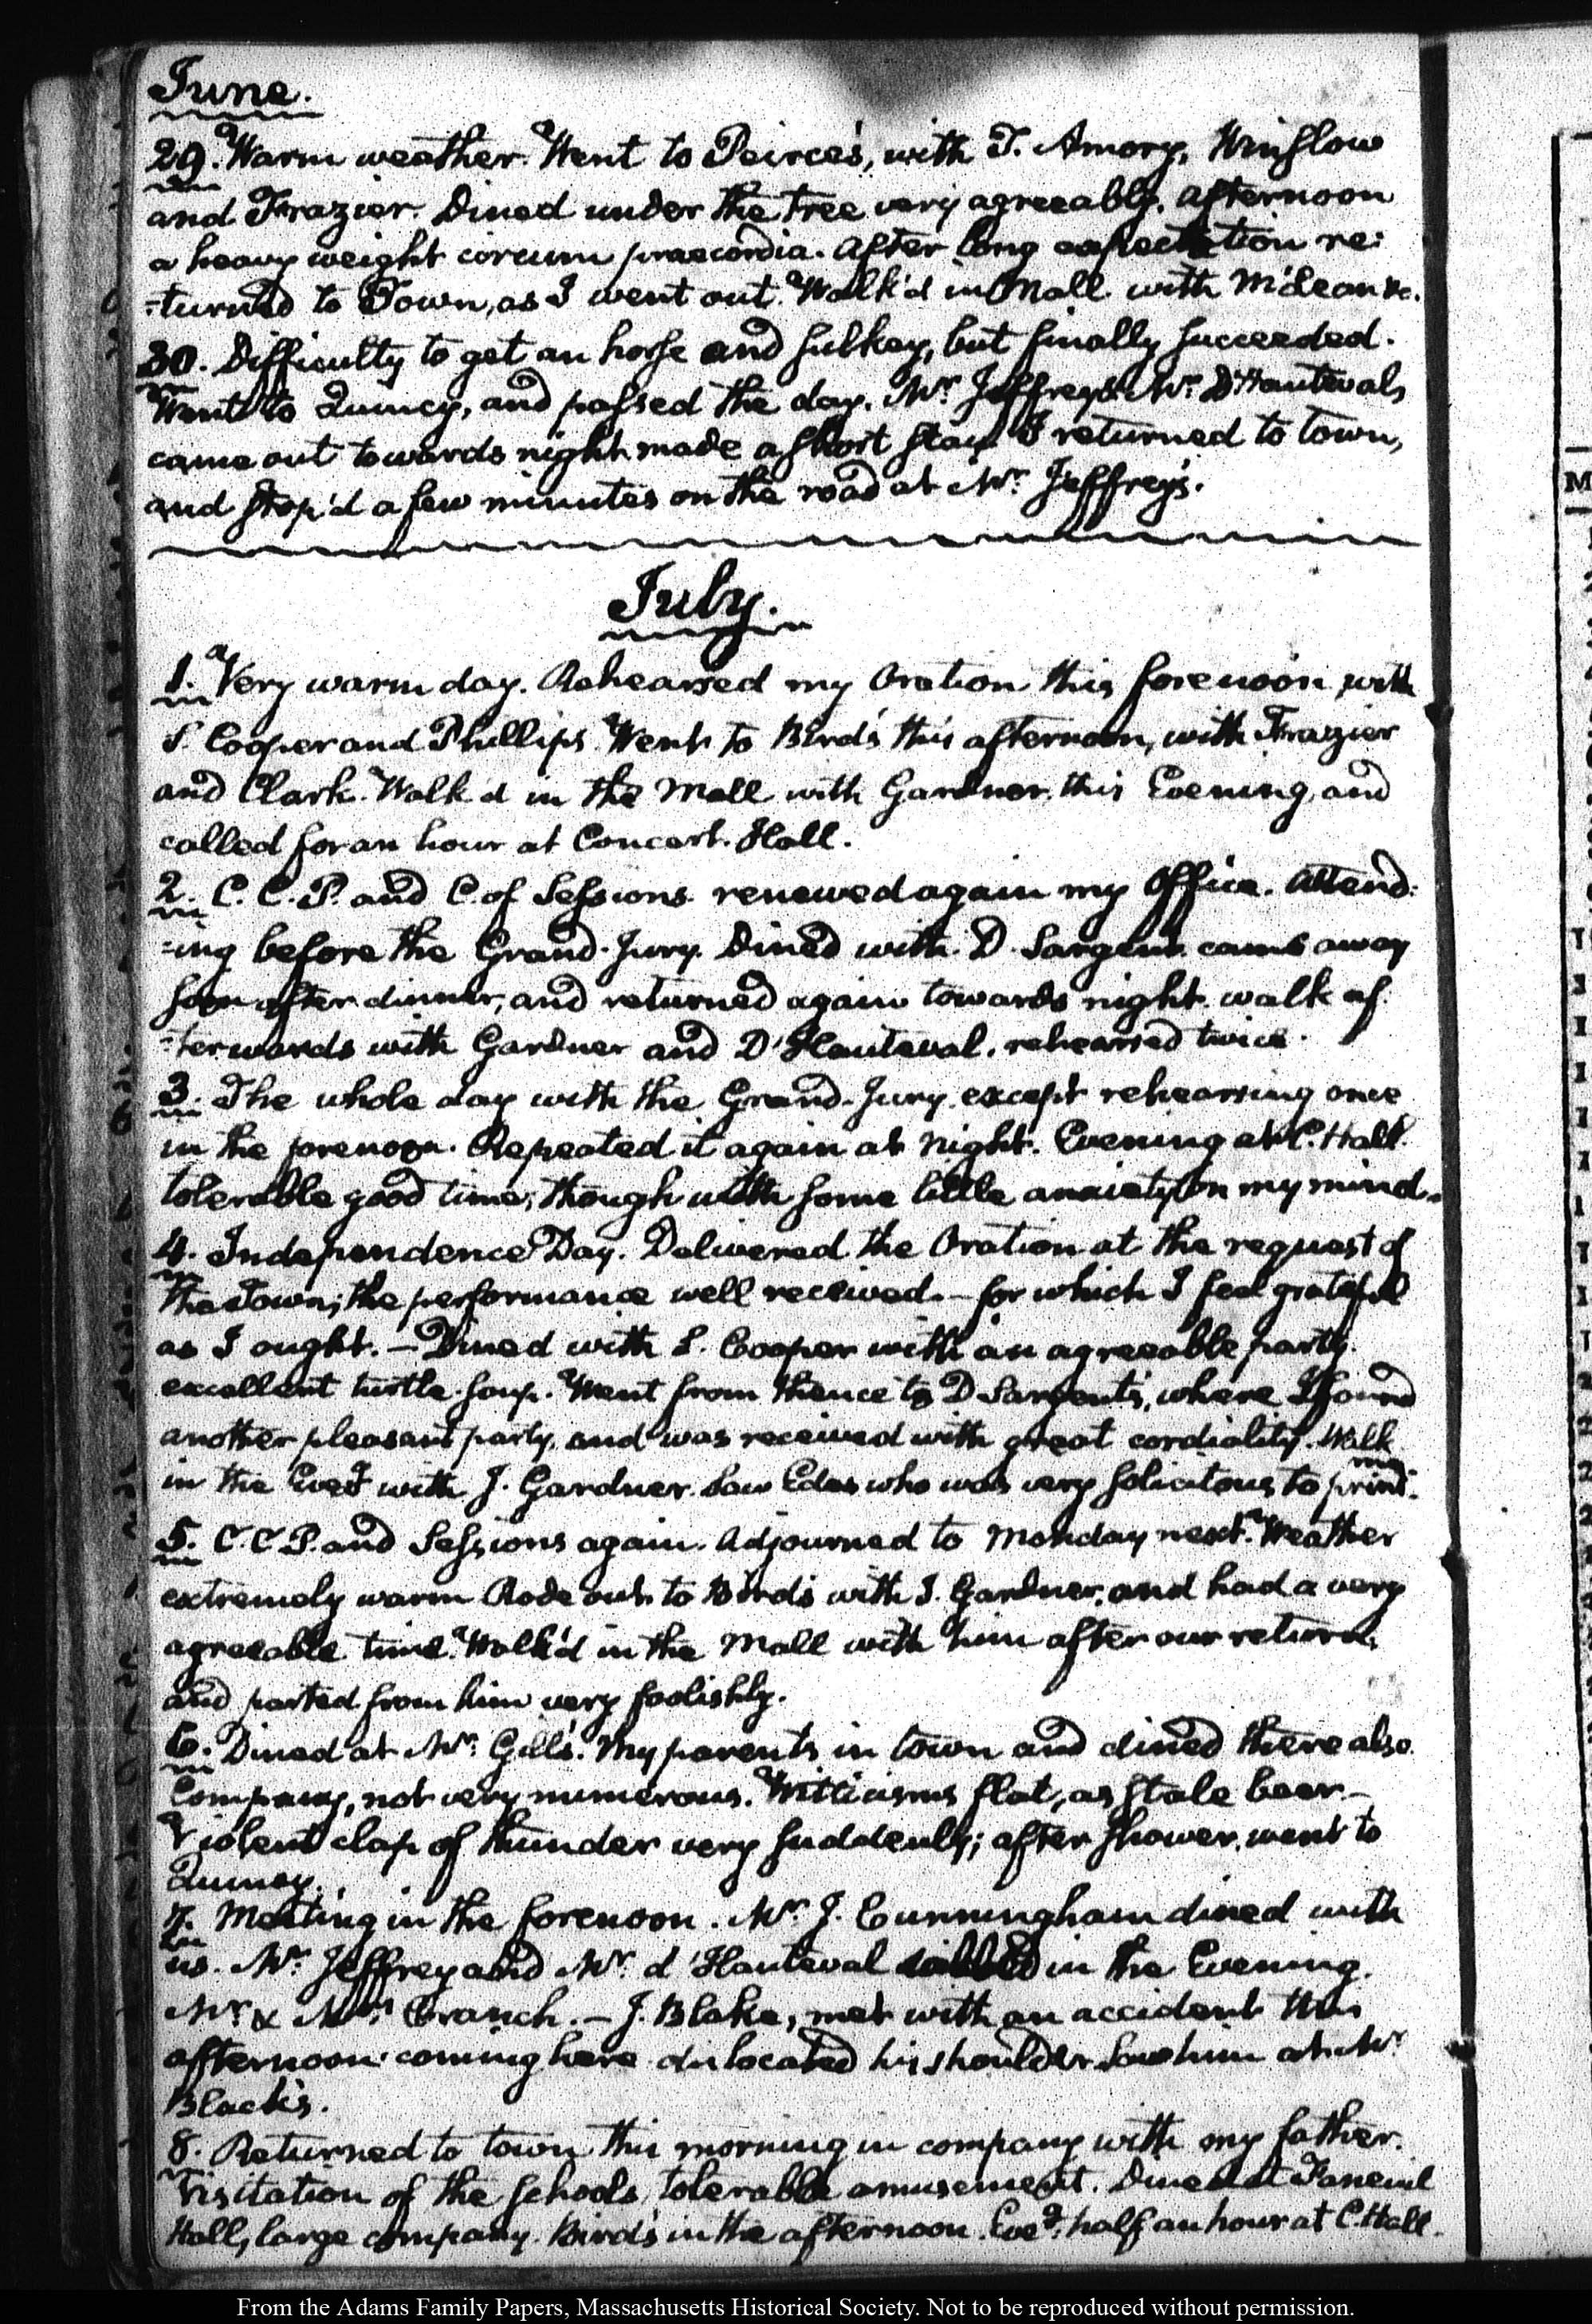 June.
29. Warm weather. Went to Peirce's, with T. Amory, Winslow
and Frazier. Dined under the tree very agreeably. Afternoon
a heavy weight circum praecordia. After long expectation re:
:turned to Town, as I went out. Walk'd in Mall with McLean &c.
30. Difficulty to get an horse and sulkey, but finally succeeded.
Went to Quincy, and passed the day. Mr. Jeffrey & Mr. D'Hauteval
came out towards night made a short stay I returned to town,
and stop'd a few minutes on the road at Mr. Jeffrey's.
July.
1. Very warm day. Rehearsed my Oration this forenoon, with
S. Cooper and Phillips. Went to Bird's this afternoon, with Frazier
and Clark. Walk'd in the Mall with Gardner this Evening, and
called for an hour at Concert-Hall.
2. C. C. P. and C. of Sessions renewed again my Office. Attend:
:ing before the Grand-Jury. Dined with D Sargent. came away
soon after dinner, and returned again towards night. walk af:
:terwards with Gardner and D'Hauteval. rehearsed twice.
3. The whole day with the Grand-Jury. except rehearsing once
in the forenoon. Repeated it again at night. Evening at C. Hall.
tolerable good time; though with some little anxiety on my mind.
4. Independence Day. Delivered the Oration at the request of
the Town; the performance well received. — for which I feel grateful
as I ought. — Dined with S. Cooper with an agreeable party.
excellent turtle-soup. Went from thence to D Sargent's, where I found
another pleasant party, and was received with great cordiality. Walk
in the Eveg with J. Gardner. Saw Edes who was very solicitous to print.
5. C. C. P. and Sessions again. Adjourned to Monday next. Weather
extremely warm Rode out to Bird's with J. Gardner, and had a very
agreeable time. Walk'd in the Mall with him after our return,
and parted from him very foolishly.
6. Dined at Mr. Gill's. My parents in town and dined there also.
Company, not very numerous. Witticisms flat, as stale beer. —
Violent clap of thunder very suddenly; after shower, went to
Quincy.
7. Meeting in the forenoon. Mr. J. Cunningham dined with
us. Mr. Jeffrey and Mr. d'Hauteval called in the Evening.
Mr. & Mrs. Cranch. — J. Blake, met with an accident this
afternoon coming here dislocated his shoulder Saw him at Mr
Black's.
8. Returned to town this morning in company with my father.
Visitation of the schools, tolerable amusement. Dined at Faneuil
Hall, large company. Bird's in the afternoon. Eveg. half an hour at C. Hall.
From the Adams Family Papers, Massachusetts Historical Society. Not to be reproduced without permission.